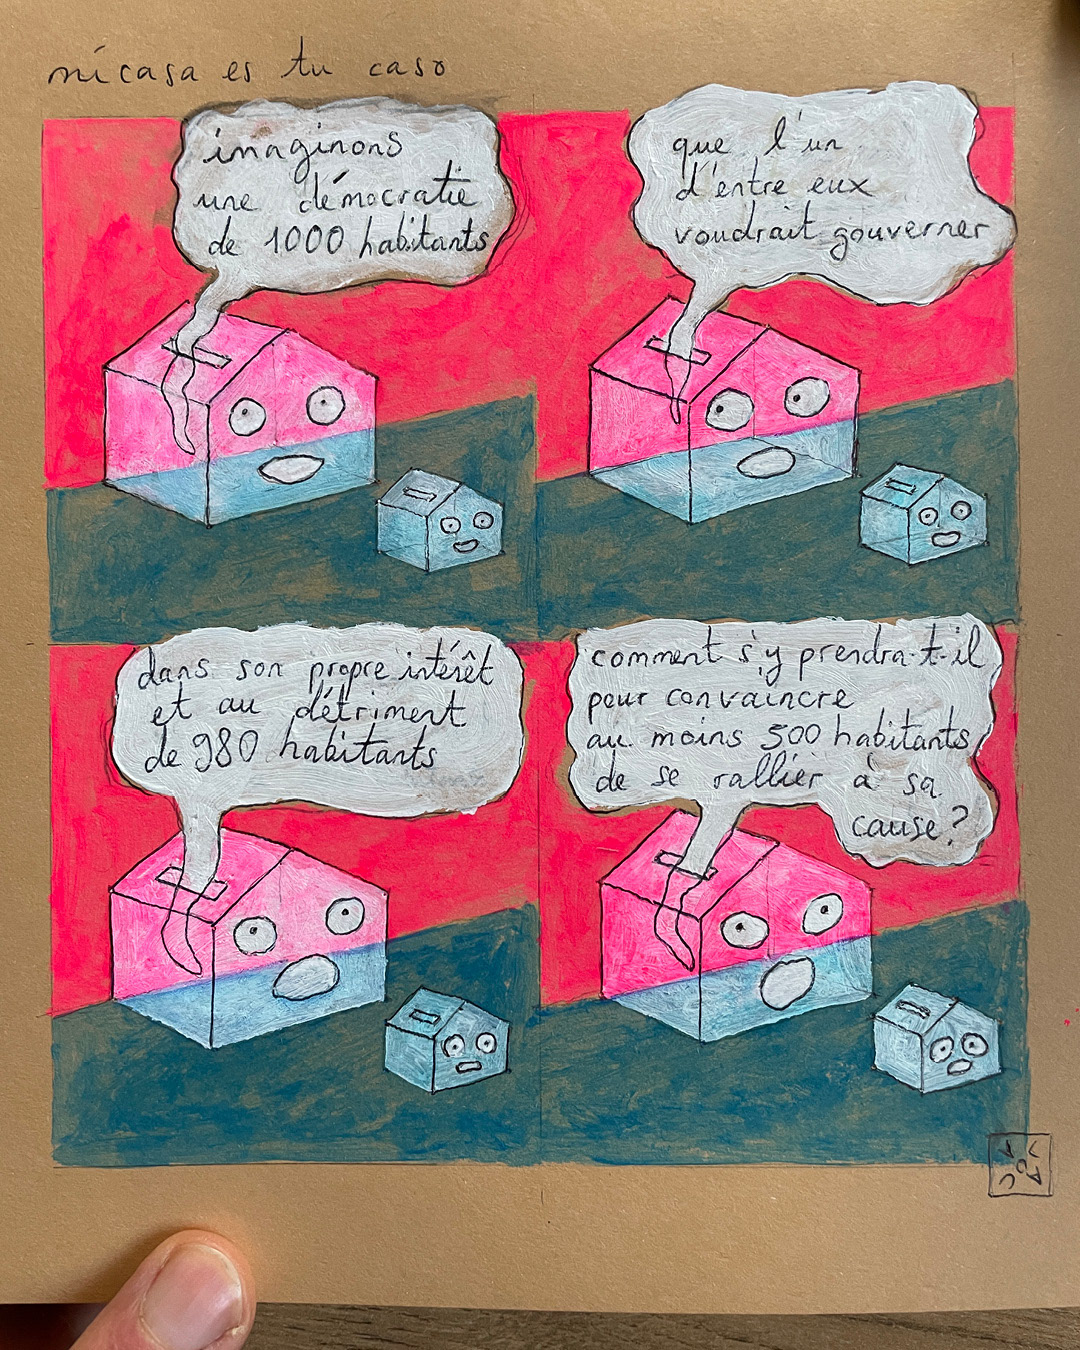 mi casa es tu caso
imaginons
une démocratie
de 1000 habitants
que l'un
d'entre eux
voudrait gouverner
dans son propre intérêt
et au détriment
de 980 habitants
comment s'y prendra-t-il
pour convaincre
au moins 500 habitants
de se rallier à sa
cause?